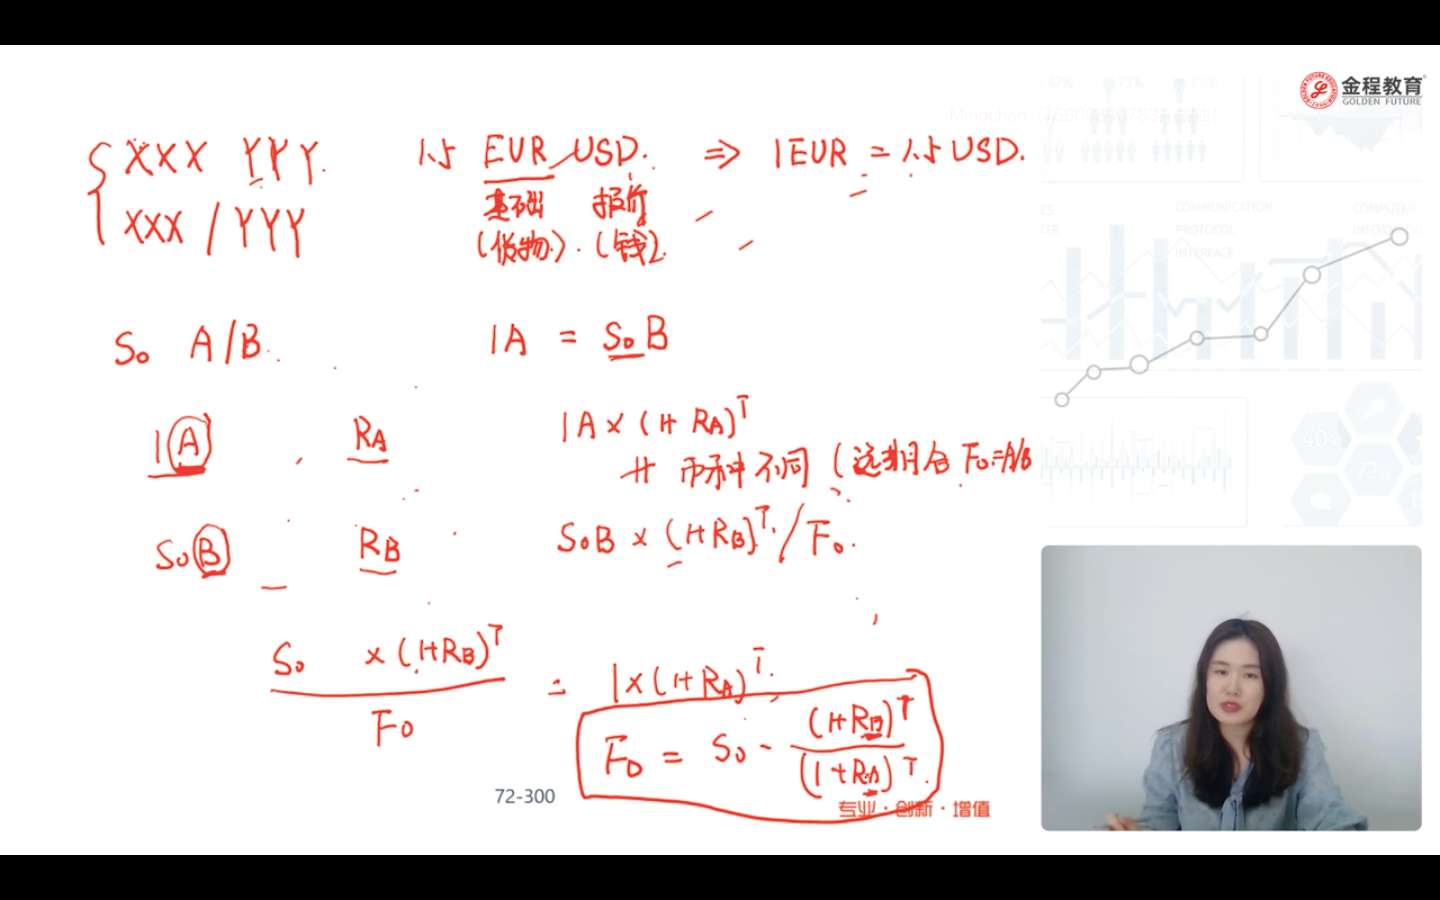 金程教育
GOLDEN FUTURE
XXX YYY.
1.5 EUR/USD. ⇒ 1 EUR = 1.5 USD.
XXX / YYY
基础 报价
(货物). (钱).
S₀ A/B. 1A = S₀ B
1 A , RA 1A × (1+RA)ᵀ
币种不同 (远期合 F₀=A/B
S₀ B RB S₀B × (1+RB)ᵀ / F₀.
S₀ × (1+RB)ᵀ = 1×(1+RA)ᵀ
F₀
F₀ = S₀ · (1+RB)ᵀ
(1+RA)ᵀ.
72-300
专业·创新·增值